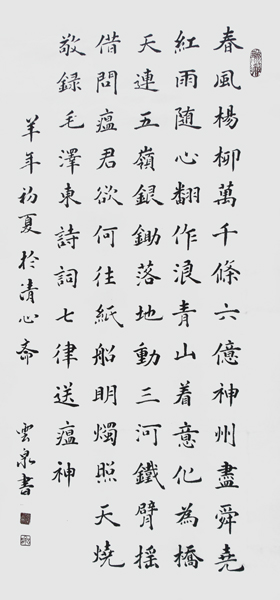 春風楊柳萬千條六億神州盡舜堯
紅雨隨心翻作浪青山着意化為橋
天連五嶺銀鋤落地動三河鐵臂搖
借問瘟君欲何往紙船明燭照天燒
敬録毛澤東詩詞七律送瘟神
羊年初夏於清心斋
雲泉書